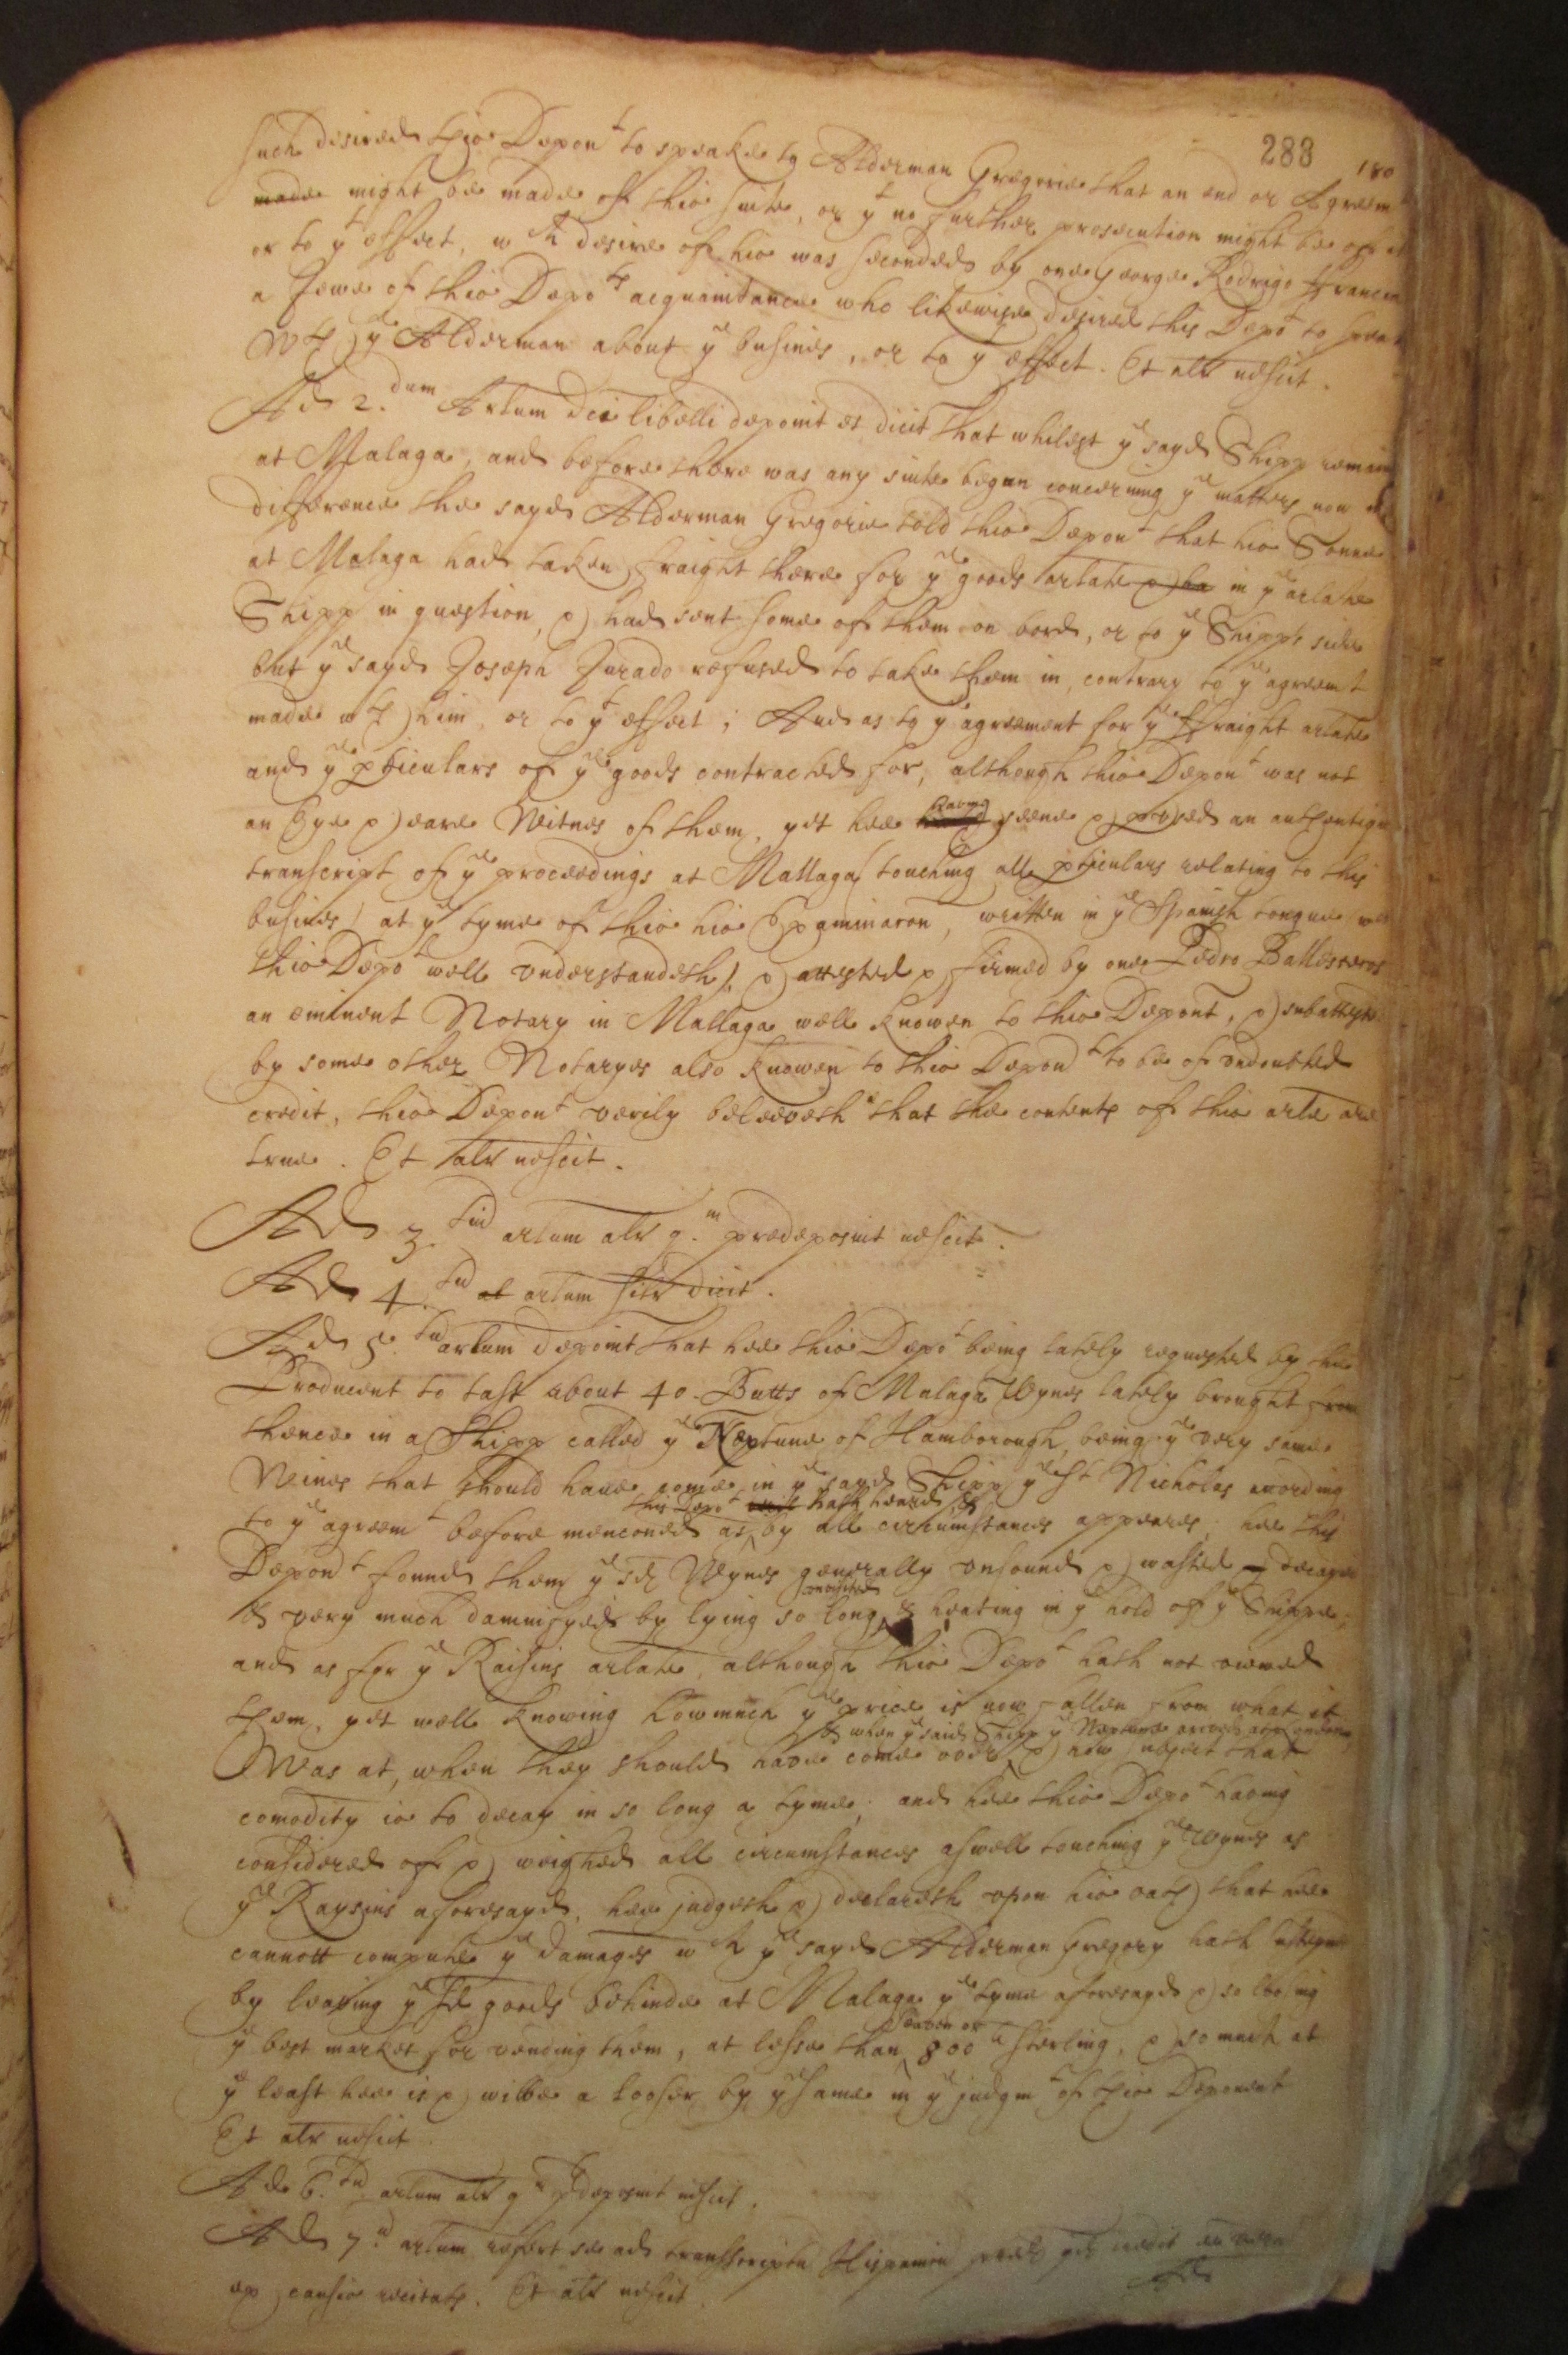 283 180
such desired this Depont to speake to Alderman Gregorie that an end or Agreemt
made might be made of this suite, or yt no further prosecution might be of it
or to yt effect, wch desire of his was seconded by one George Rodrigo ffrancia
a Jewe of this Depots acquaintance who likewise desired this Depot to speak
wth ye Alderman about ye busines, or to yt effect. Et alr nescit.
Ad 2.dum Artum dci libelli deponit et dicit That whilest ye sayd Shipp remained
at Malaga, and before there was any suite begun concerning ye matters now in
difference the sayd Alderman Gregorie told this Depont that his Sonne
at Malaga had taken fraight there for ye goods arlate in ye arlate
Shipp in question, & had sent some of them on bord, or to ye Shipps side
but ye sayd Joseph Jurado refused to take them in, contrary to ye agreemt
made wth him, or to yt effect; And as to ye agreement for ye ffraight arlate
and ye pticulars of ye goods contracted for, although this Depont was not
an Eye & eare Witnes of them, yet hee having seene & an autentique
transcript of ye proceedings at Mallaga (touching all pticulars relating to this
busines) at ye tyme of this his Examinacon, written in ye Spanish tongue (wch
this Depot well understandeth), & attested & firmed by one Pedro Ballesteros
an eminent Notary in Mallaga well knowen to this Depont, & subattested
by some other Notaryes also knowen to this Depondt to be of undoubted
credit, this Depont verily beleeveth that the contents of this arle are
true. Et alr nescit.
Ad 3.tiu artum alr qm predeposuit nescit.
Ad 4.tu al artum silr dicit.
Ad 5.tu artum deponit That hee this Depot being lately requested by the
Producent to tast about 40. Butts of Malaga Wynes lately brought from
thence in a Shipp called ye Neptune of Hamborough, being ye very same
Wines that should have come in ye sayd Shipp ye St Nicholas according
this Depot hath heard &
to ye agreemt before menconed as by all circumstances appeares, hee this
Depondt found them ye sd Wynes generally unsound & wasted decayed
& very much damnifyed by lying so long & heating in ye hold of ye Shippe;
and as for ye Raisins arlate, although this Depot hath not viewed
them, yet well knowing howmuch ye price is now fallen from what it
& when ye said Shipp ye Neptune arived
Was at, when they should have come over, & how subject that
comodity is to decay in so long a tyme; and hee this Depot having
considered of & weighed all circumstances aswell touching ye Wynes as
ye Raysins aforesayd, hee judgeth & declareth upon his oath that hee
cannott compute ye damages wch ye sayd Alderman Gregory hath susteyned
by leaving ye sd goods behinde at Malaga ye tyme aforesayd & so loosing
seaven or
ye best market for vending them, at lesse than 800 li sterling, & so much at
ye least hee is & wilbe a looser by ye same in ye judgmt of this Deponent
Et alr nescit.
Ad 6.tu artum alr qm pdeposuit nescit.
Ad 7.u artum refert se ad transscriptu Hispanicu credit
ex causis recitats. Et alr nescit.